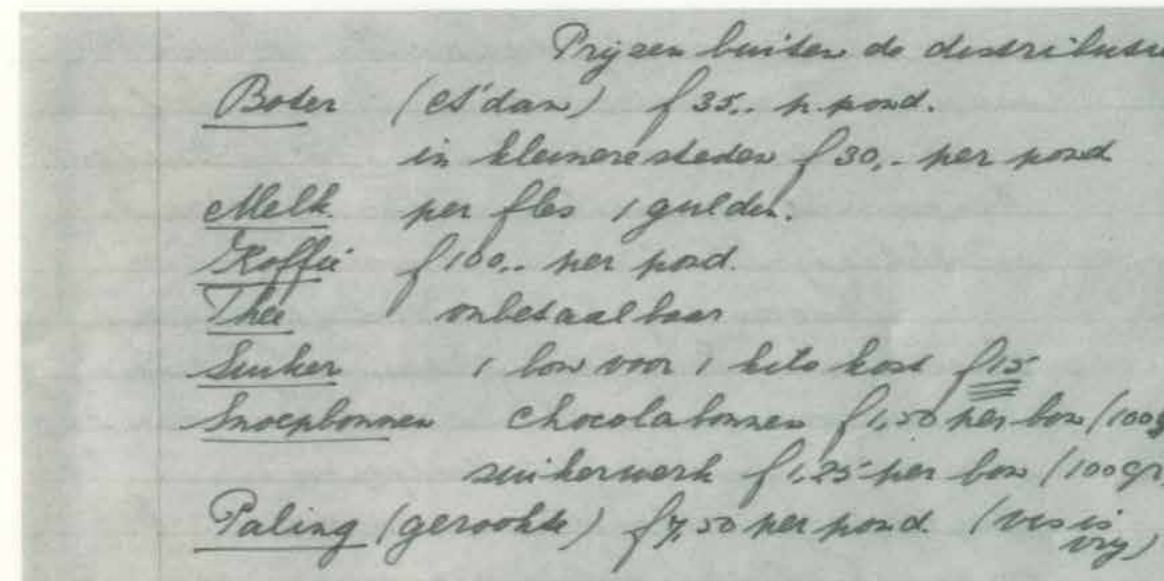 Prijzen buiten de distributie
Boter (A'dam) f 35,- p. pond.
in kleinere steden f 30,- per pond
Melk per fles 1 gulden.
Koffie f 100,- per pond.
Thee onbetaalbaar
Suiker 1 bon voor 1 kilo kost f 15
Snoepbonnen chocolabonnen f 1,50 per bon (100g
suikerwerk f 1,25 per bon (100gr
Paling (gerookte) f 7,50 per pond. (vis is
vrij)